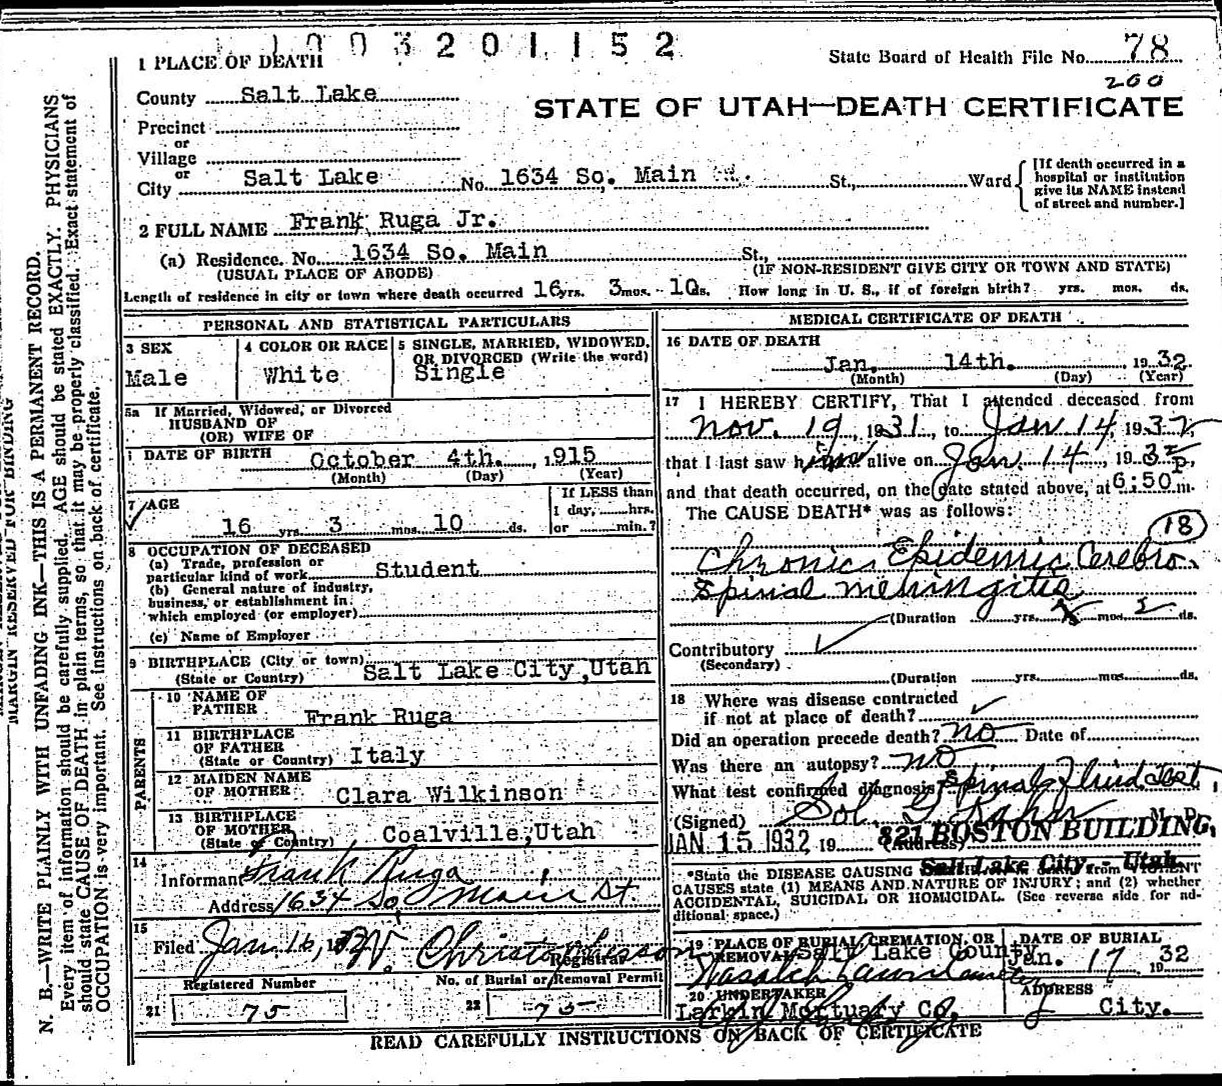 1003201152
State Board of Health File No. 78
200
1 PLACE OF DEATH
County Salt Lake
STATE OF UTAH—DEATH CERTIFICATE
Precinct
or
Village
or
City Salt Lake No. 1634 So. Main St., Ward
[If death occurred in a
hospital or institution
give its NAME instead
of street and number.]
2 FULL NAME Frank Ruga Jr.
(a) Residence. No. 1634 So. Main St.,
(USUAL PLACE OF ABODE) (IF NON-RESIDENT GIVE CITY OR TOWN AND STATE)
Length of residence in city or town where death occurred 16 yrs. 3 mos. 10 ds. How long in U. S., if of foreign birth? yrs. mos. ds.
PERSONAL AND STATISTICAL PARTICULARS
3 SEX
Male
4 COLOR OR RACE
White
5 SINGLE, MARRIED, WIDOWED,
OR DIVORCED (Write the word)
Single
5a If Married, Widowed, or Divorced
HUSBAND OF
(OR) WIFE OF
DATE OF BIRTH October 4th. , 1915
(Month) (Day) (Year)
7 AGE
16 yrs. 3 mos. 10 ds.
If LESS than
1 day, hrs.
or min.?
8 OCCUPATION OF DECEASED
(a) Trade, profession or
particular kind of work Student
(b) General nature of industry,
business, or establishment in
which employed (or employer)
(c) Name of Employer
9 BIRTHPLACE (City or town)
(State or Country) Salt Lake City, Utah
PARENTS
10 NAME OF
FATHER Frank Ruga
11 BIRTHPLACE
OF FATHER
(State or Country) Italy
12 MAIDEN NAME
OF MOTHER Clara Wilkinson
13 BIRTHPLACE
OF MOTHER
(State or Country) Coalville, Utah
14
Informant Frank Ruga
Address 1634 So. Main St.
15
Filed Jan. 16, 1932 W. Christopherson
Registrar
Registered Number
21 75
No. of Burial or Removal Permit
22 75
MEDICAL CERTIFICATE OF DEATH
16 DATE OF DEATH
Jan. 14th. 1932
(Month) (Day) (Year)
17 I HEREBY CERTIFY, That I attended deceased from
Nov. 19, 1931, to Jan 14, 1932,
that I last saw him alive on Jan. 14, 1932,
and that death occurred, on the date stated above, at 6:50 p m.
The CAUSE DEATH* was as follows:
18
Chronic Epidemic Cerebro
Spinal meningitis
(Duration yrs. mos. ds.
Contributory
(Secondary)
(Duration yrs. mos. ds.
18 Where was disease contracted
if not at place of death?
Did an operation precede death? No Date of
Was there an autopsy? No
What test confirmed diagnosis? Spinal Fluid test
(Signed) Sol. G. Kahn M. D.
JAN 15 1932 19 (Address)
821 BOSTON BUILDING,
Salt Lake City - Utah
*State the DISEASE CAUSING from VIOLENT
CAUSES state (1) MEANS AND NATURE OF INJURY; and (2) whether
ACCIDENTAL, SUICIDAL OR HOMICIDAL. (See reverse side for ad-
ditional space.)
19 PLACE OF BURIAL, CREMATION, OR
REMOVAL Salt Lake County
Wasatch Lawn Cemetery
DATE OF BURIAL
Jan. 17 1932
20 UNDERTAKER
Larkin Mortuary Co.
ADDRESS
City.
READ CAREFULLY INSTRUCTIONS ON BACK OF CERTIFICATE
MARGIN RESERVED FOR BINDING
N. B.—WRITE PLAINLY WITH UNFADING INK—THIS IS A PERMANENT RECORD.
Every item of information should be carefully supplied. AGE should be stated EXACTLY. PHYSICIANS
should state CAUSE OF DEATH in plain terms, so that it may be properly classified. Exact statement of
OCCUPATION is very important. See instructions on back of certificate.